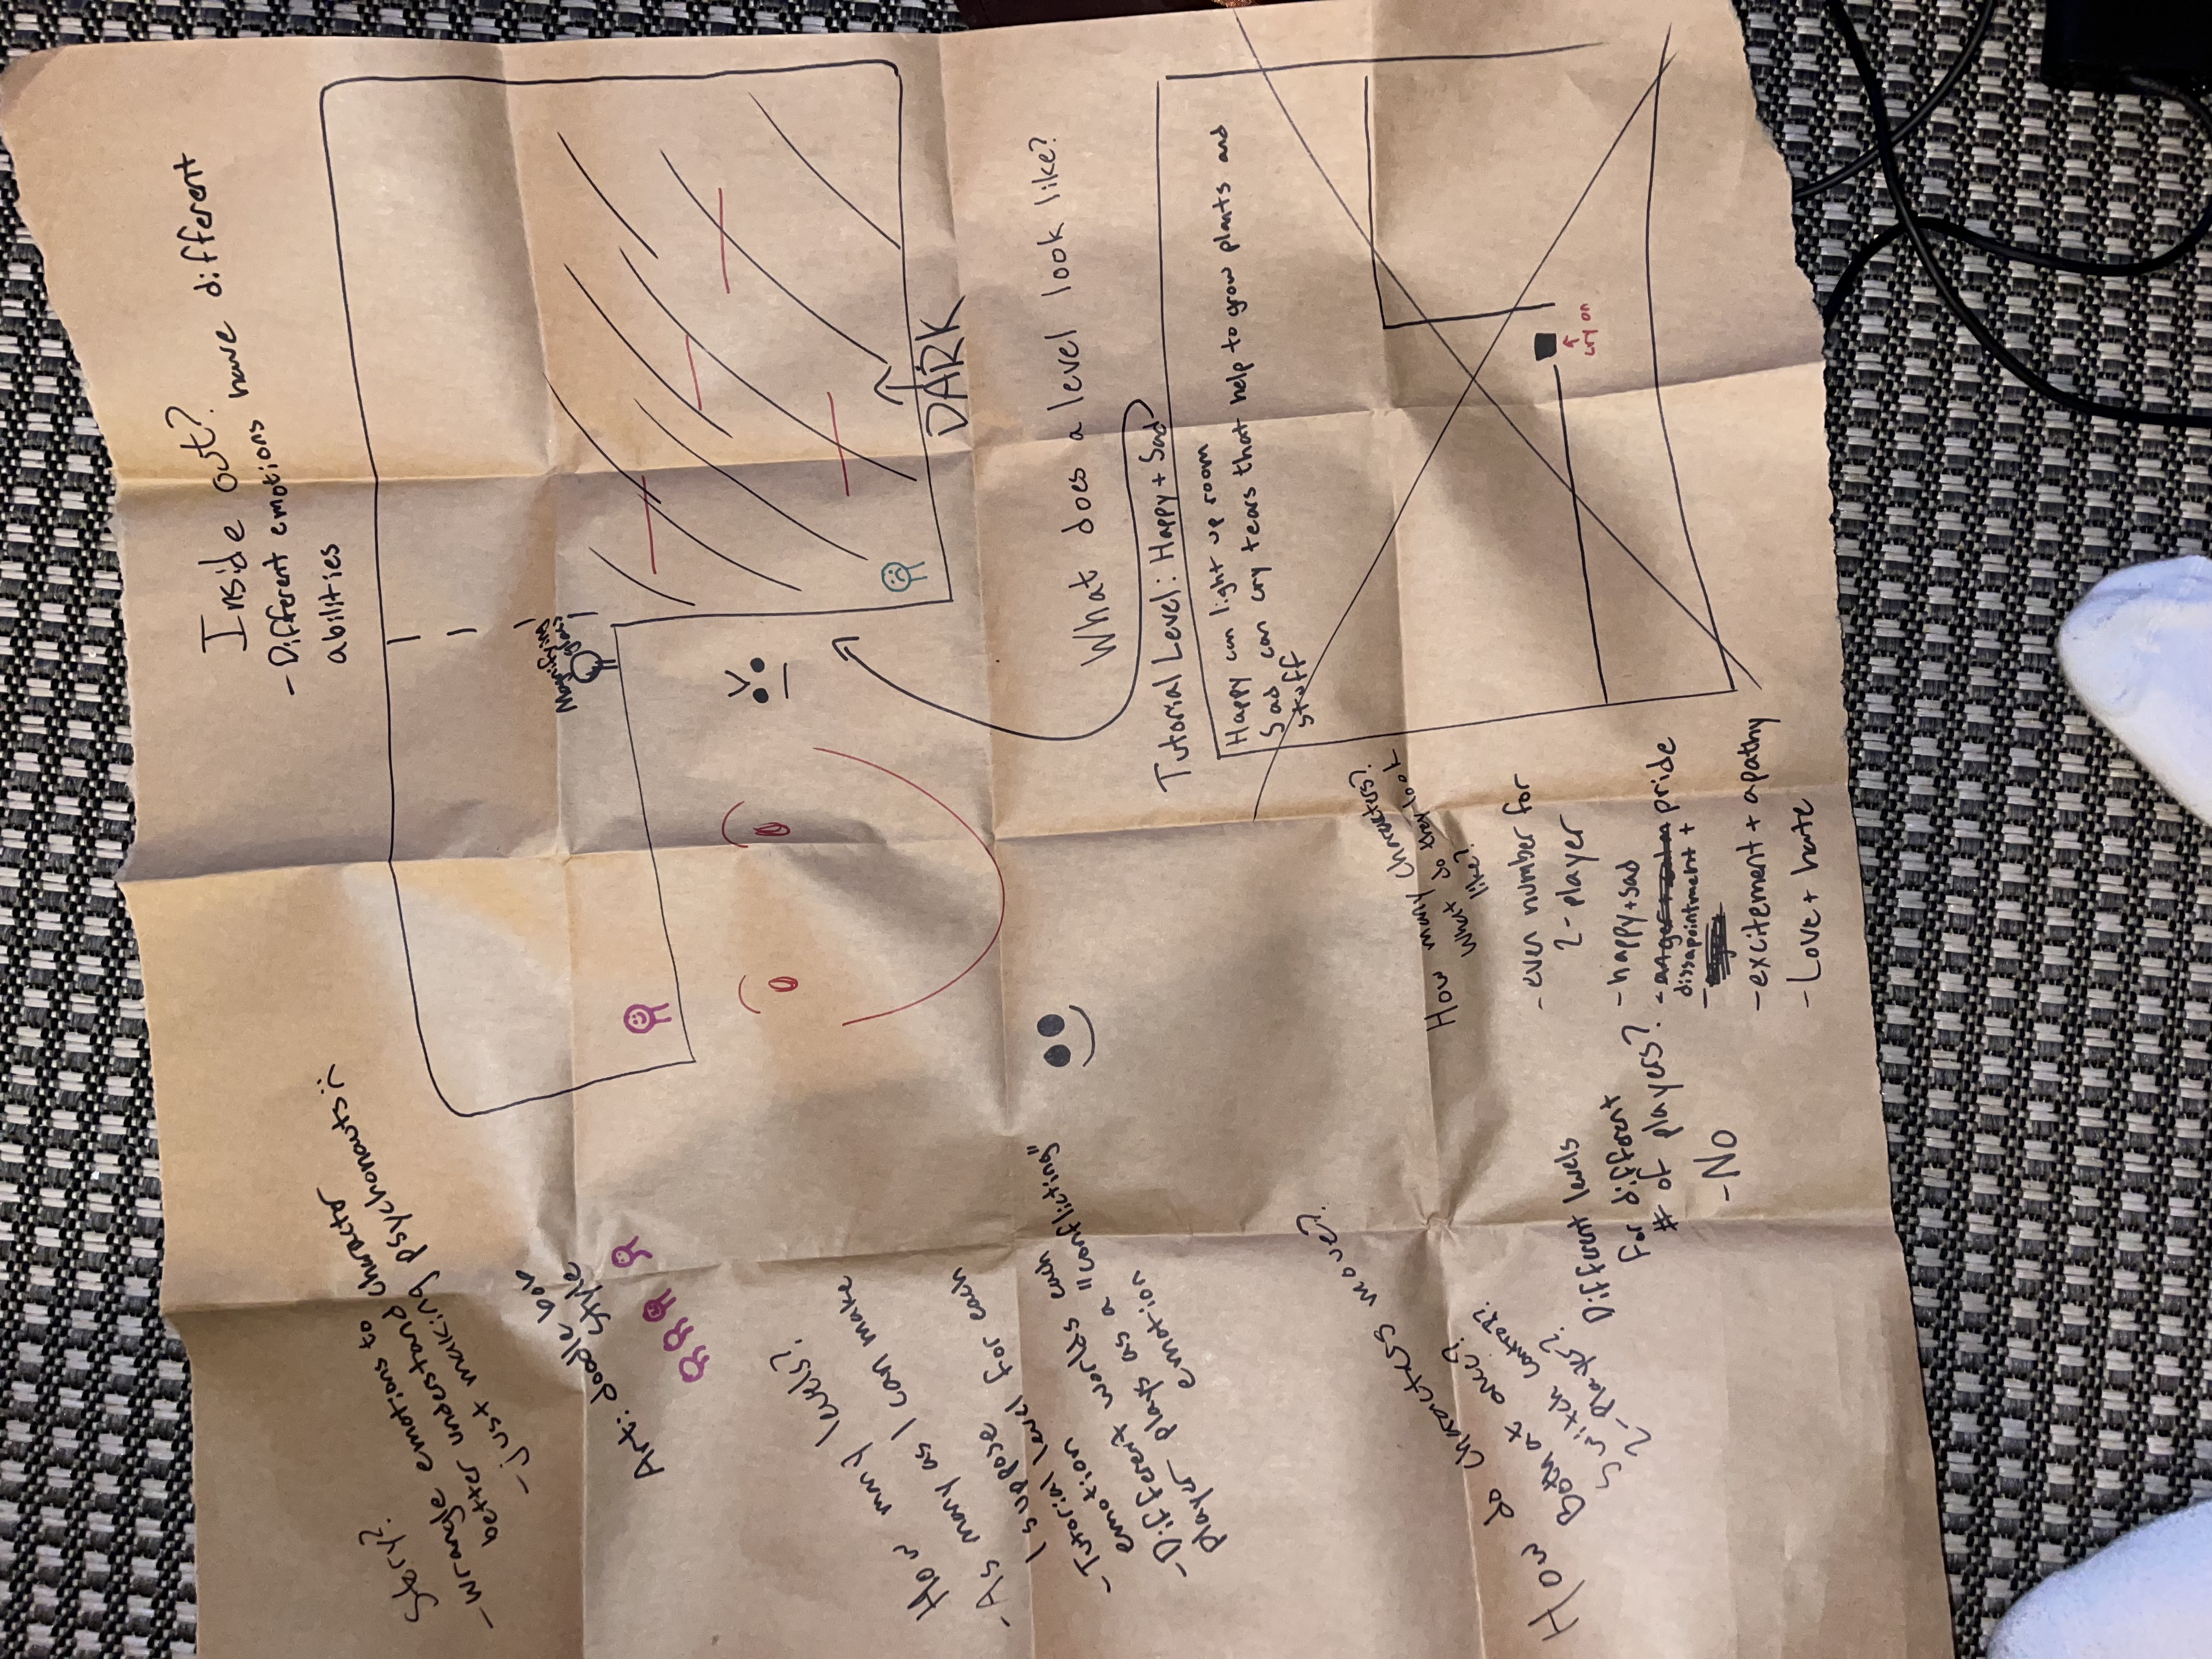 Inside out?
- Different emotions have different
abilities
Story?
- wrangle emotions to
better understand character
- just making psychonauts :(
Art: doodle bob
style
Magnifying
glass
DARK
How many levels?
- As many as I can make
I suppose
- Tutorial level for each
emotion
- Different worlds each
player plays as a "conflicting"
emotion
What does a level look like?
Tutorial Level: Happy + Sad
Happy can light up room
Sad can cry tears that help to grow plants and
stuff
cry on
How do characters move?
Both at once?
Switch control?
2-Player?
Different levels
for different
# of players?
- No
How many characters?
What do they look
like?
- even number for
2-player
- happy + sad
- anger + calm pride
dissapointment +
-
- excitement + apathy
- Love + hate